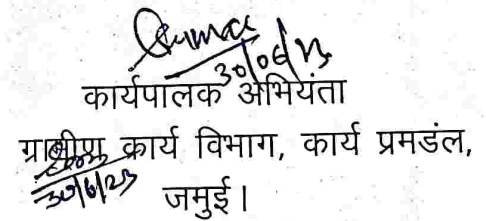 30/06/23
कार्यपालक अभियंता
ग्रामीण कार्य विभाग, कार्य प्रमडंल,
30/6/23
जमुई।